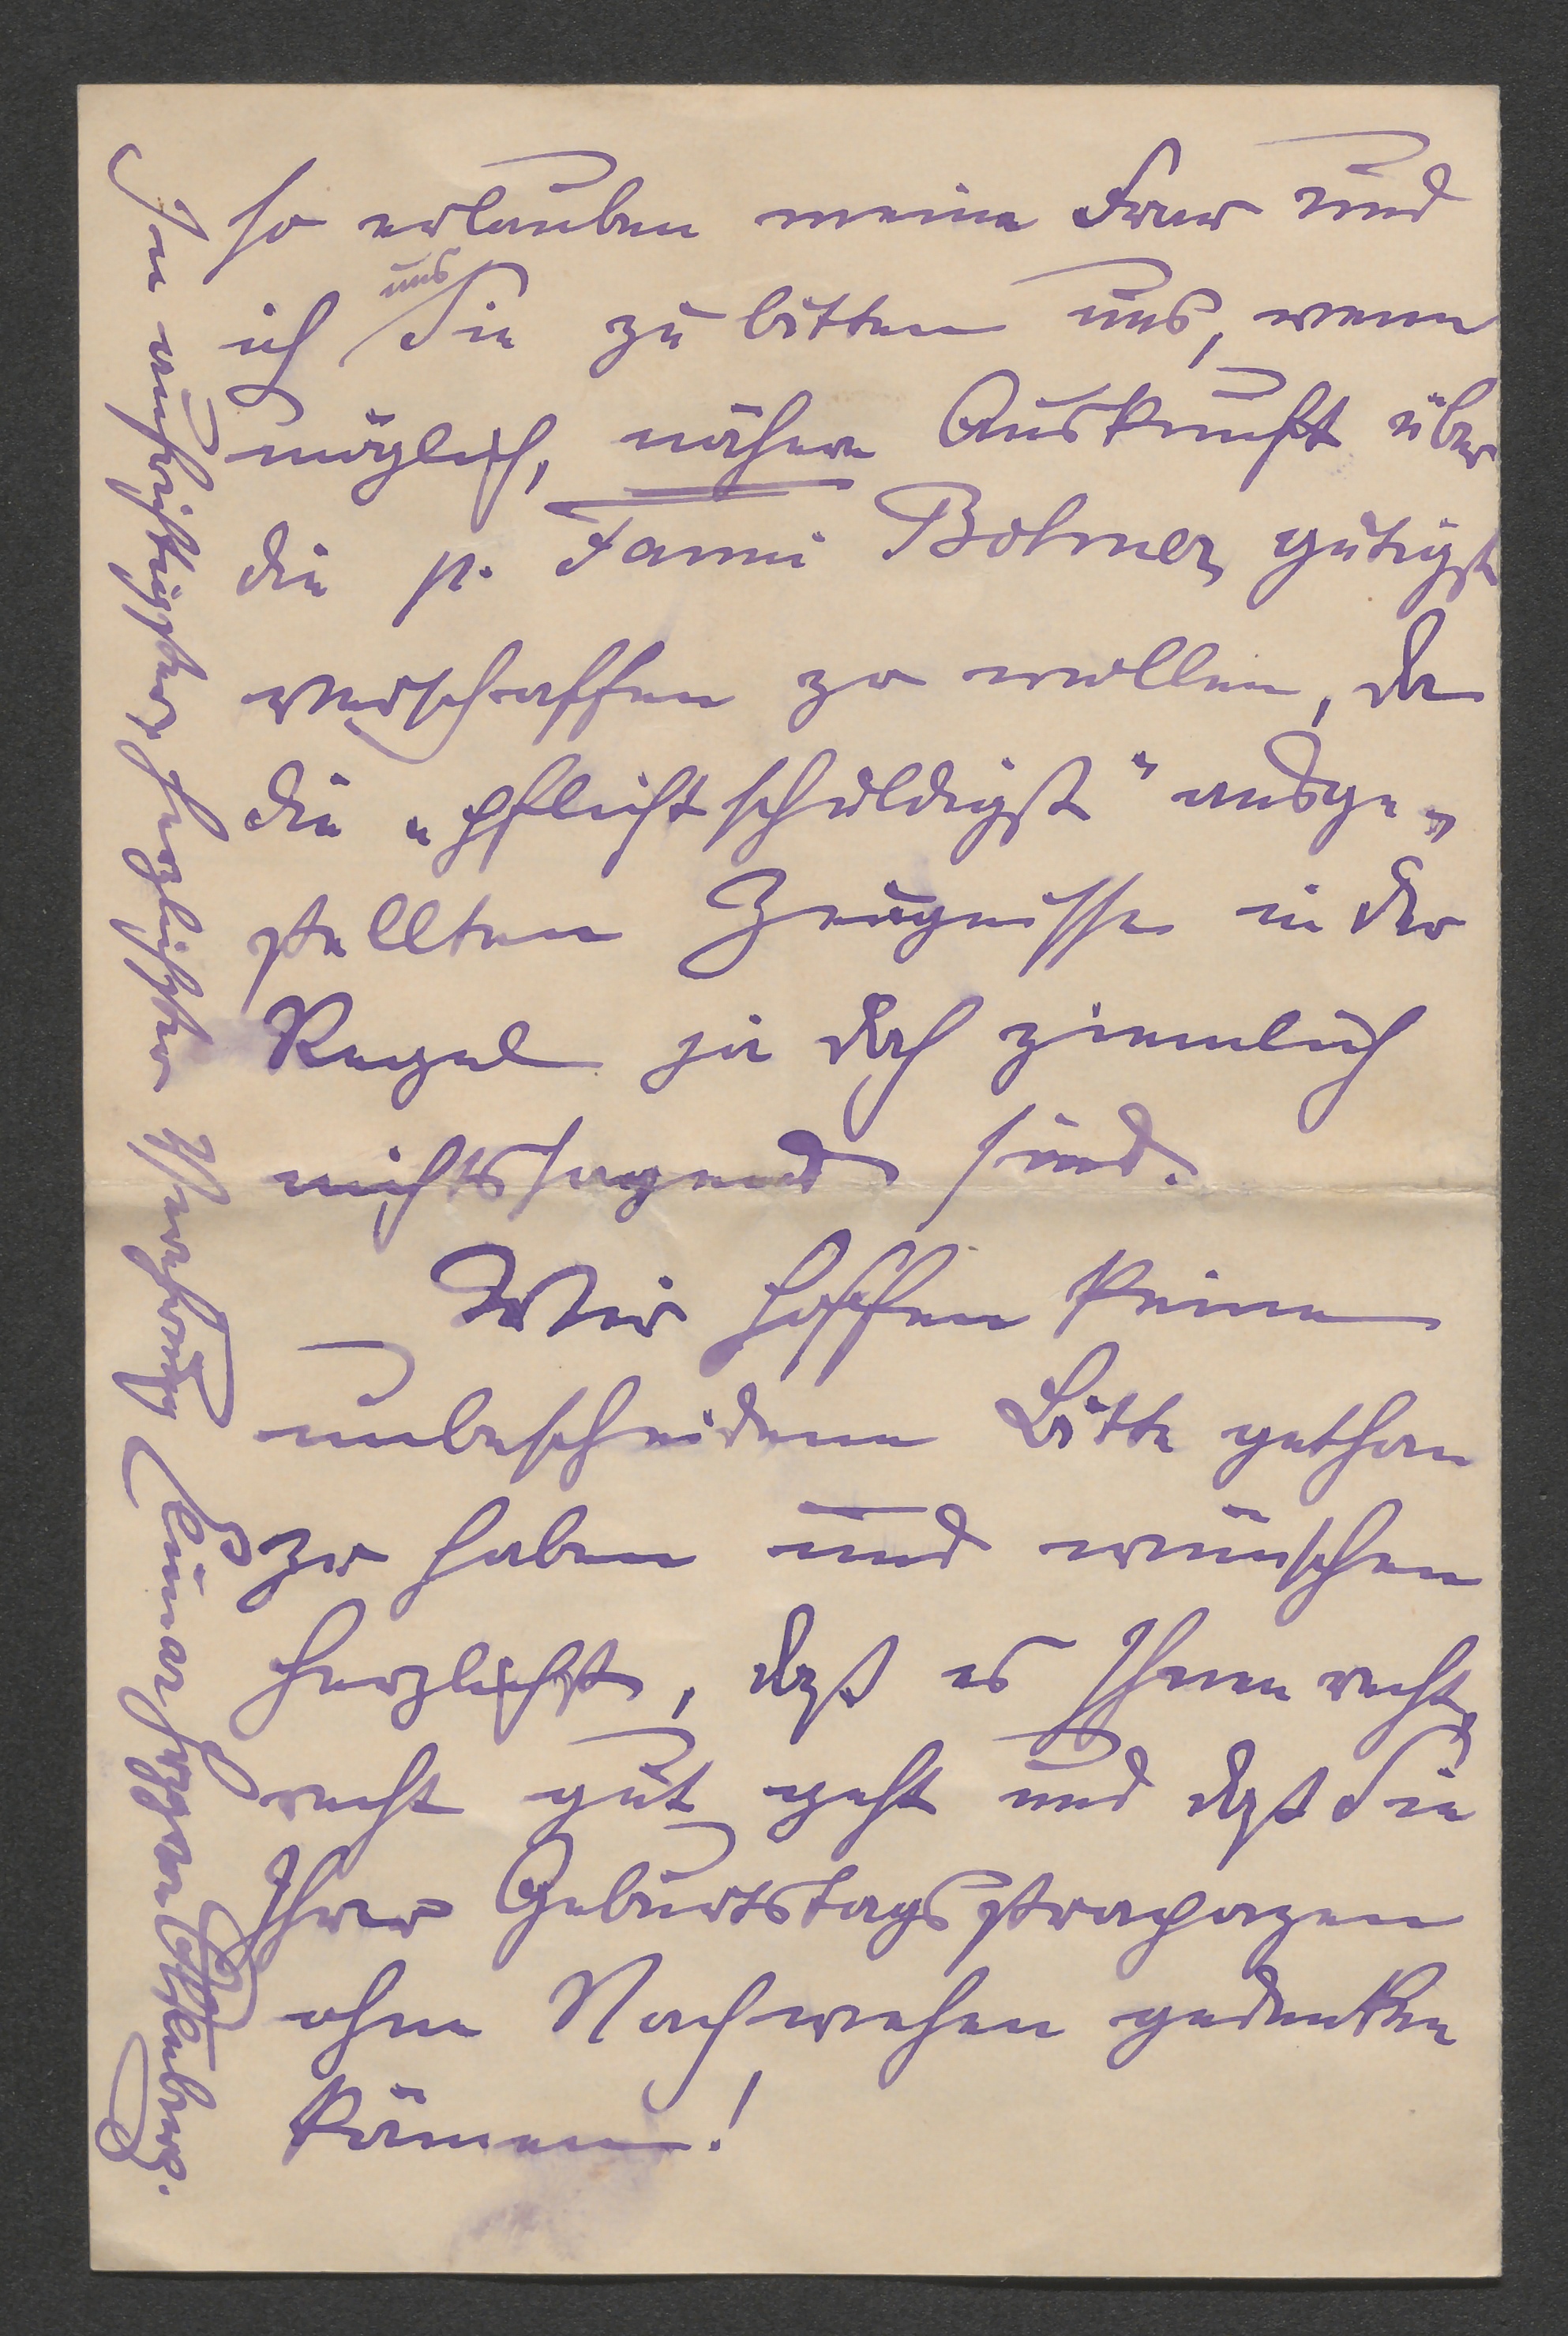 so erlauben meine Frau und
ich uns Sie zu bitten uns, wenn
möglich, nähere Auskunft über
die p. Fanni Bohmer gütigst
verschaffen zu wollen, da
die „pflichtschuldigst" ausge„
stellten Zeugnisse in der
Regel ja doch ziemlich
nichtssagend sind.
Wir hoffen keine
unbescheidene Bitte gethan
zu haben und wünschen
herzlichst, daß es Ihnen recht,
recht gut geht und daß Sie
Ihrer Geburtstagsstrapazen
ohne Nachwehen gedenken
können!
In aufrichtigster herzlichster Verehrung